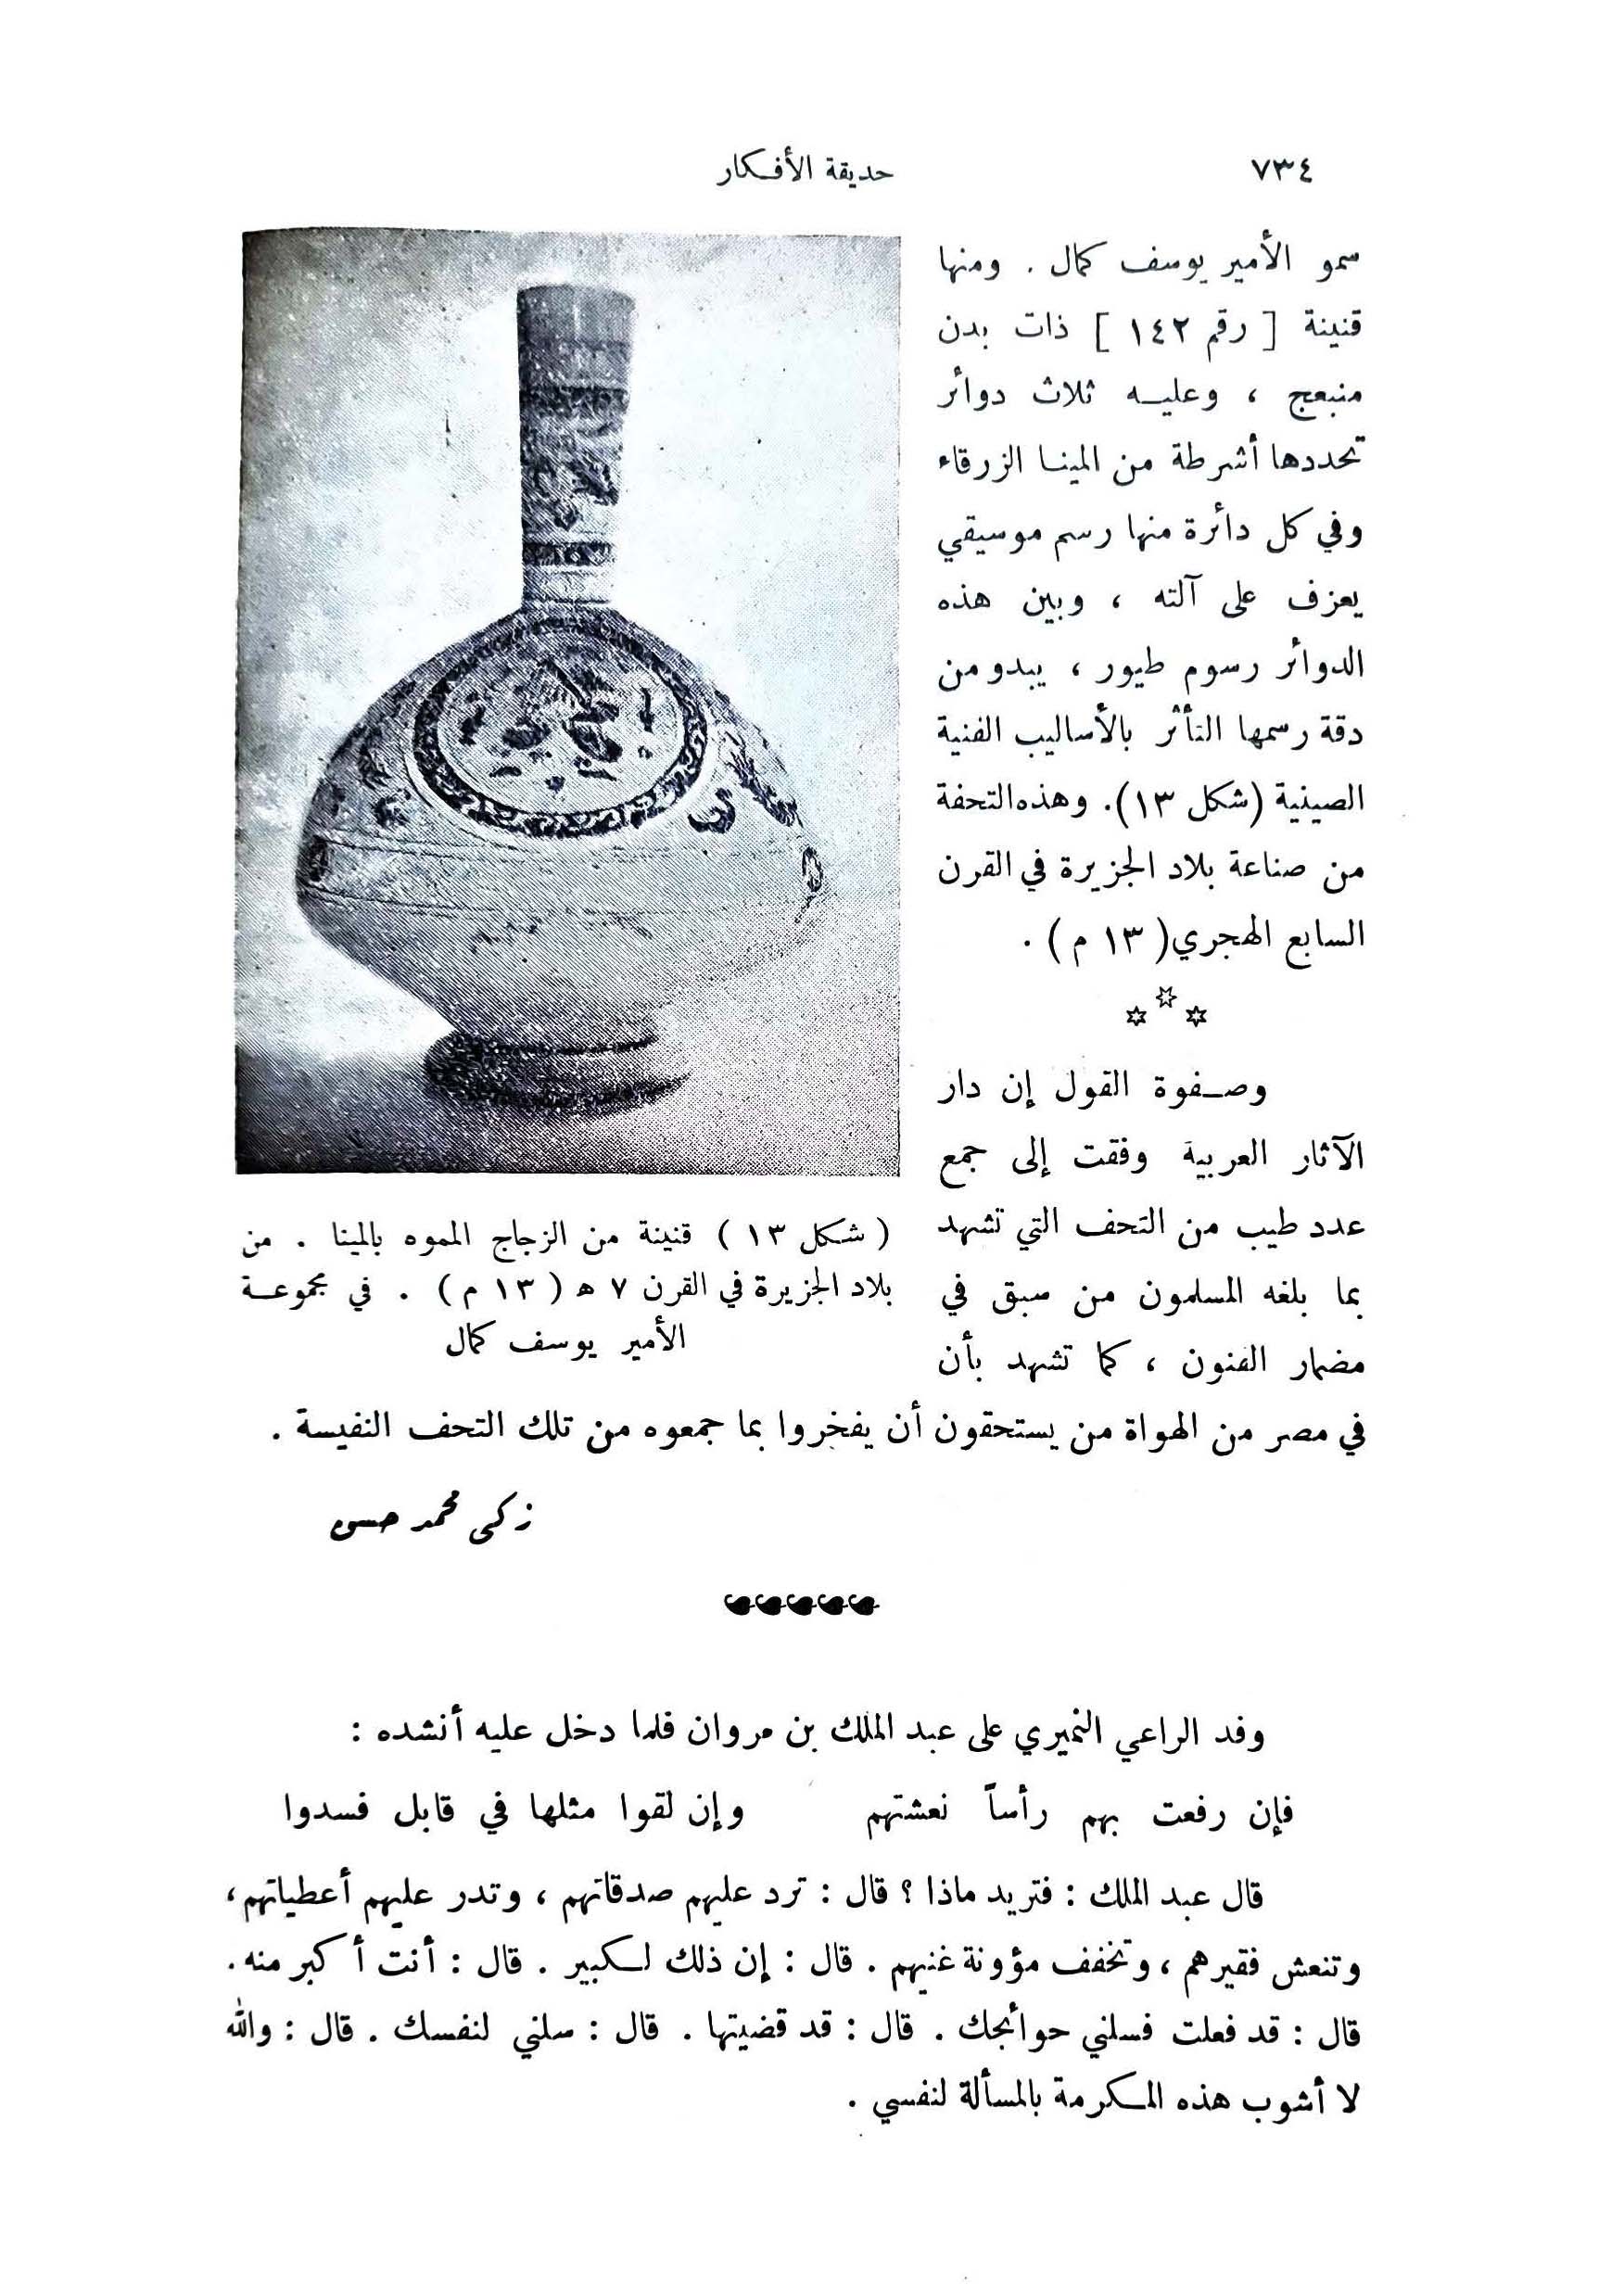 ٧٣٤
حديقة الأفكار
سمو الأمير يوسف كمال . ومنها
قنينة [ رقم ١٤٢ ] ذات بدن
منبعج ، وعليه ثلاث دوائر
تحددها أشرطة من المينا الزرقاء
وفي كل دائرة منها رسم موسيقي
يعزف على آلته ، وبين هذه
الدوائر رسوم طيور ، يبدو من
دقة رسمها التأثر بالأساليب الفنية
الصينية (شكل ١٣). وهذه التحفة
من صناعة بلاد الجزيرة في القرن
السابع الهجري ( ١٣ م ) .
وصفوة القول إن دار
الآثار العربية وفقت إلى جمع
عدد طيب من التحف التي تشهد
بما بلغه المسلمون من سبق في
مضمار الفنون ، كما تشهد بأن
في مصر من الهواة من يستحقون أن يفخروا بما جمعوه من تلك التحف النفيسة .
( شكل ١٣ ) قنينة من الزجاج المموه بالمينا . من
بلاد الجزيرة في القرن ٧ ه ( ١٣ م ) . في مجموعة
الأمير يوسف كمال
زكى محمد حسن
وفد الراعي النميري على عبد الملك بن مروان فلما دخل عليه أنشده :
فإن رفعت بهم رأساً نعشتهم وإن لقوا مثلها في قابل فسدوا
قال عبد الملك : فتريد ماذا ؟ قال : ترد عليهم صدقاتهم ، وتدر عليهم أعطياتهم ،
وتنعش فقيرهم ، وتخفف مؤونة غنيهم . قال : إن ذلك لكبير . قال : أنت أكبر منه .
قال : قد فعلت فسلني حوائجك . قال : قد قضيتها . قال : سلني لنفسك . قال : والله
لا أشوب هذه المكرمة بالمسألة لنفسي .